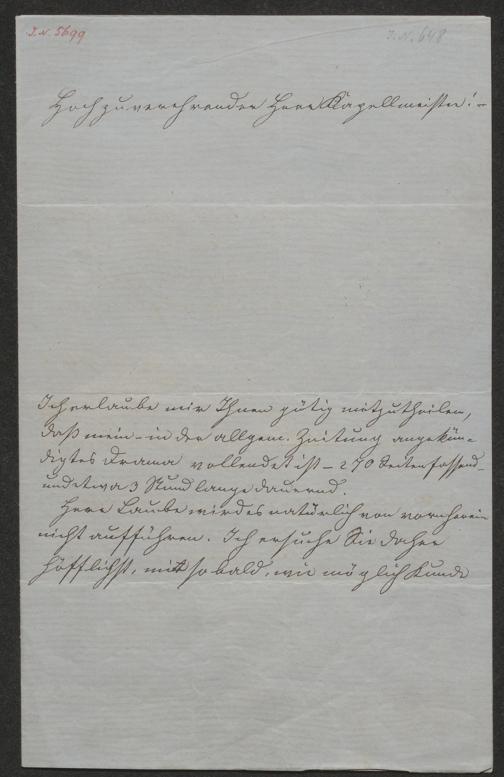 I.N. 5699
I.N. 648
Hochzuverehrender Herr Kapellmeister! –
Ich erlaube mir Ihnen gütig mitzutheilen,
daß mein – in der allgem. Zeitung angekün-
digtes Drama vollendet ist – 270 Seiten fassend –
und etwa 3 Stund lange dauernd.
Herr Laube wird es natürlich von vornherein
nicht aufführen. Ich ersuche Sie daher
höfflichst, mit so bald, wie möglich Kunde